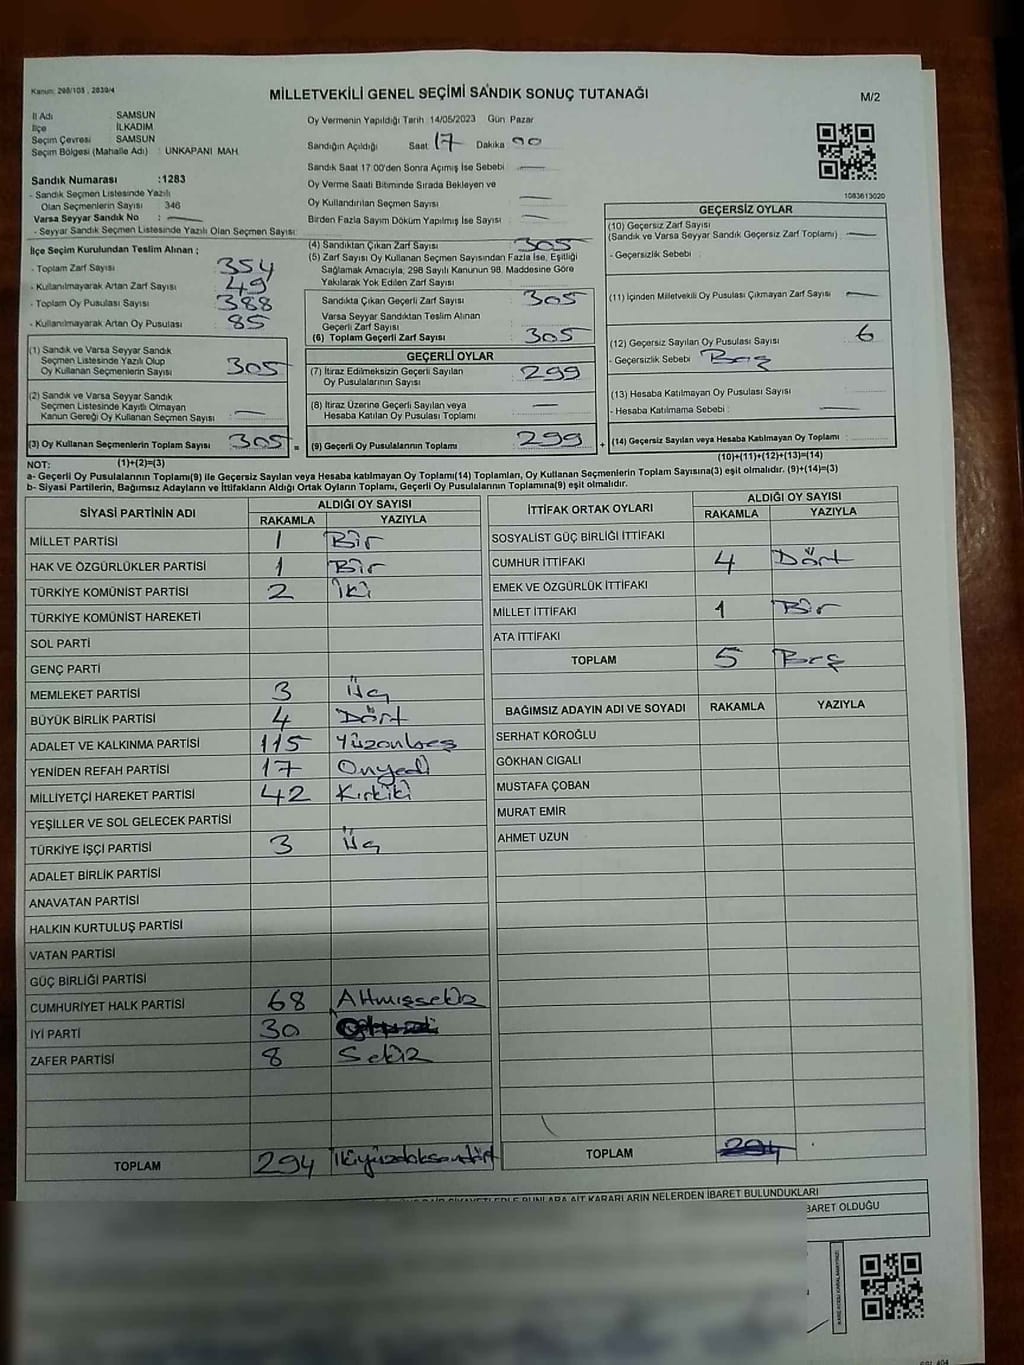 Kanun: 298/105 , 2839/4
MİLLETVEKİLİ GENEL SEÇİMİ SANDIK SONUÇ TUTANAĞI
M/2
İl Adı : SAMSUN
İlçe : İLKADIM
Seçim Çevresi : SAMSUN
Seçim Bölgesi (Mahalle Adı) : UNKAPANI MAH.
Oy Vermenin Yapıldığı Tarih : 14/05/2023 Gün : Pazar
Sandığın Açıldığı Saat : 17 Dakika
Sandık Saat 17:00'den Sonra Açımış İse Sebebi : —
Oy Verme Saati Bitiminde Sırada Bekleyen ve
Oy Kullandırılan Seçmen Sayısı : —
Birden Fazla Sayım Döküm Yapılmış İse Sayısı : —
1083613020
Sandık Numarası : 1283
- Sandık Seçmen Listesinde Yazılı
Olan Seçmenlerin Sayısı : 346
Varsa Seyyar Sandık No : —
- Seyyar Sandık Seçmen Listesinde Yazılı Olan Seçmen Sayısı:
İlçe Seçim Kurulundan Teslim Alınan ;
- Toplam Zarf Sayısı : 354
- Kullanılmayarak Artan Zarf Sayısı : 49
- Toplam Oy Pusulası Sayısı : 388
- Kullanılmayarak Artan Oy Pusulası : 85
(1) Sandık ve Varsa Seyyar Sandık
Seçmen Listesinde Yazılı Olup
Oy Kullanan Seçmenlerin Sayısı : 305
(2) Sandık ve Varsa Seyyar Sandık
Seçmen Listesinde Kayıtlı Olmayan
Kanun Gereği Oy Kullanan Seçmen Sayısı : —
(3) Oy Kullanan Seçmenlerin Toplam Sayısı : 305 =
(1)+(2)=(3)
(4) Sandıktan Çıkan Zarf Sayısı : 305
(5) Zarf Sayısı Oy Kullanan Seçmen Sayısından Fazla İse, Eşitliği
Sağlamak Amacıyla, 298 Sayılı Kanunun 98. Maddesine Göre
Yakılarak Yok Edilen Zarf Sayısı :
Sandıkta Çıkan Geçerli Zarf Sayısı : 305
Varsa Seyyar Sandıktan Teslim Alınan
Geçerli Zarf Sayısı :
(6) Toplam Geçerli Zarf Sayısı : 305
GEÇERLİ OYLAR
(7) İtiraz Edilmeksizin Geçerli Sayılan
Oy Pusulalarının Sayısı : 299
(8) İtiraz Üzerine Geçerli Sayılan veya
Hesaba Katılan Oy Pusulası Toplamı : —
(9) Geçerli Oy Pusulalarının Toplamı : 299 +
GEÇERSİZ OYLAR
(10) Geçersiz Zarf Sayısı
(Sandık ve Varsa Seyyar Sandık Geçersiz Zarf Toplamı) : —
- Geçersizlik Sebebi :
(11) İçinden Milletvekili Oy Pusulası Çıkmayan Zarf Sayısı : —
(12) Geçersiz Sayılan Oy Pusulası Sayısı : 6
- Geçersizlik Sebebi :
(13) Hesaba Katılmayan Oy Pusulası Sayısı :
- Hesaba Katılmama Sebebi : —
(14) Geçersiz Sayılan veya Hesaba Katılmayan Oy Toplamı :
(10)+(11)+(12)+(13)=(14)
NOT:
a- Geçerli Oy Pusulalarının Toplamı(9) ile Geçersiz Sayılan veya Hesaba katılmayan Oy Toplamı(14) Toplamları, Oy Kullanan Seçmenlerin Toplam Sayısına(3) eşit olmalıdır. (9)+(14)=(3)
b- Siyasi Partilerin, Bağımsız Adayların ve İttifakların Aldığı Ortak Oyların Toplamı, Geçerli Oy Pusulalarının Toplamına(9) eşit olmalıdır.
SİYASİ PARTİNİN ADI ALDIĞI OY SAYISI
RAKAMLA YAZIYLA
MİLLET PARTİSİ 1 Bir
HAK VE ÖZGÜRLÜKLER PARTİSİ 1 Bir
TÜRKİYE KOMÜNİST PARTİSİ 2 İki
TÜRKİYE KOMÜNİST HAREKETİ
SOL PARTİ
GENÇ PARTİ
MEMLEKET PARTİSİ 3 Üç
BÜYÜK BİRLİK PARTİSİ 4 Dört
ADALET VE KALKINMA PARTİSİ 115 Yüzonbeş
YENİDEN REFAH PARTİSİ 17 Onyedi
MİLLİYETÇİ HAREKET PARTİSİ 42 Kırkiki
YEŞİLLER VE SOL GELECEK PARTİSİ
TÜRKİYE İŞÇİ PARTİSİ 3 Üç
ADALET BİRLİK PARTİSİ
ANAVATAN PARTİSİ
HALKIN KURTULUŞ PARTİSİ
VATAN PARTİSİ
GÜÇ BİRLİĞİ PARTİSİ
CUMHURİYET HALK PARTİSİ 68 Altmışsekiz
İYİ PARTİ 30
ZAFER PARTİSİ 8 Sekiz
TOPLAM 294 İkiyüzdoksandört
İTTİFAK ORTAK OYLARI ALDIĞI OY SAYISI
RAKAMLA YAZIYLA
SOSYALİST GÜÇ BİRLİĞİ İTTİFAKI
CUMHUR İTTİFAKI 4 Dört
EMEK VE ÖZGÜRLÜK İTTİFAKI
MİLLET İTTİFAKI 1 Bir
ATA İTTİFAKI
TOPLAM 5 Beş
BAĞIMSIZ ADAYIN ADI VE SOYADI RAKAMLA YAZIYLA
SERHAT KÖROĞLU
GÖKHAN CIGALI
MUSTAFA ÇOBAN
MURAT EMİR
AHMET UZUN
TOPLAM 294
BUNLARA AİT KARARLARIN NELERDEN İBARET BULUNDUKLARI
BARET OLDUĞU